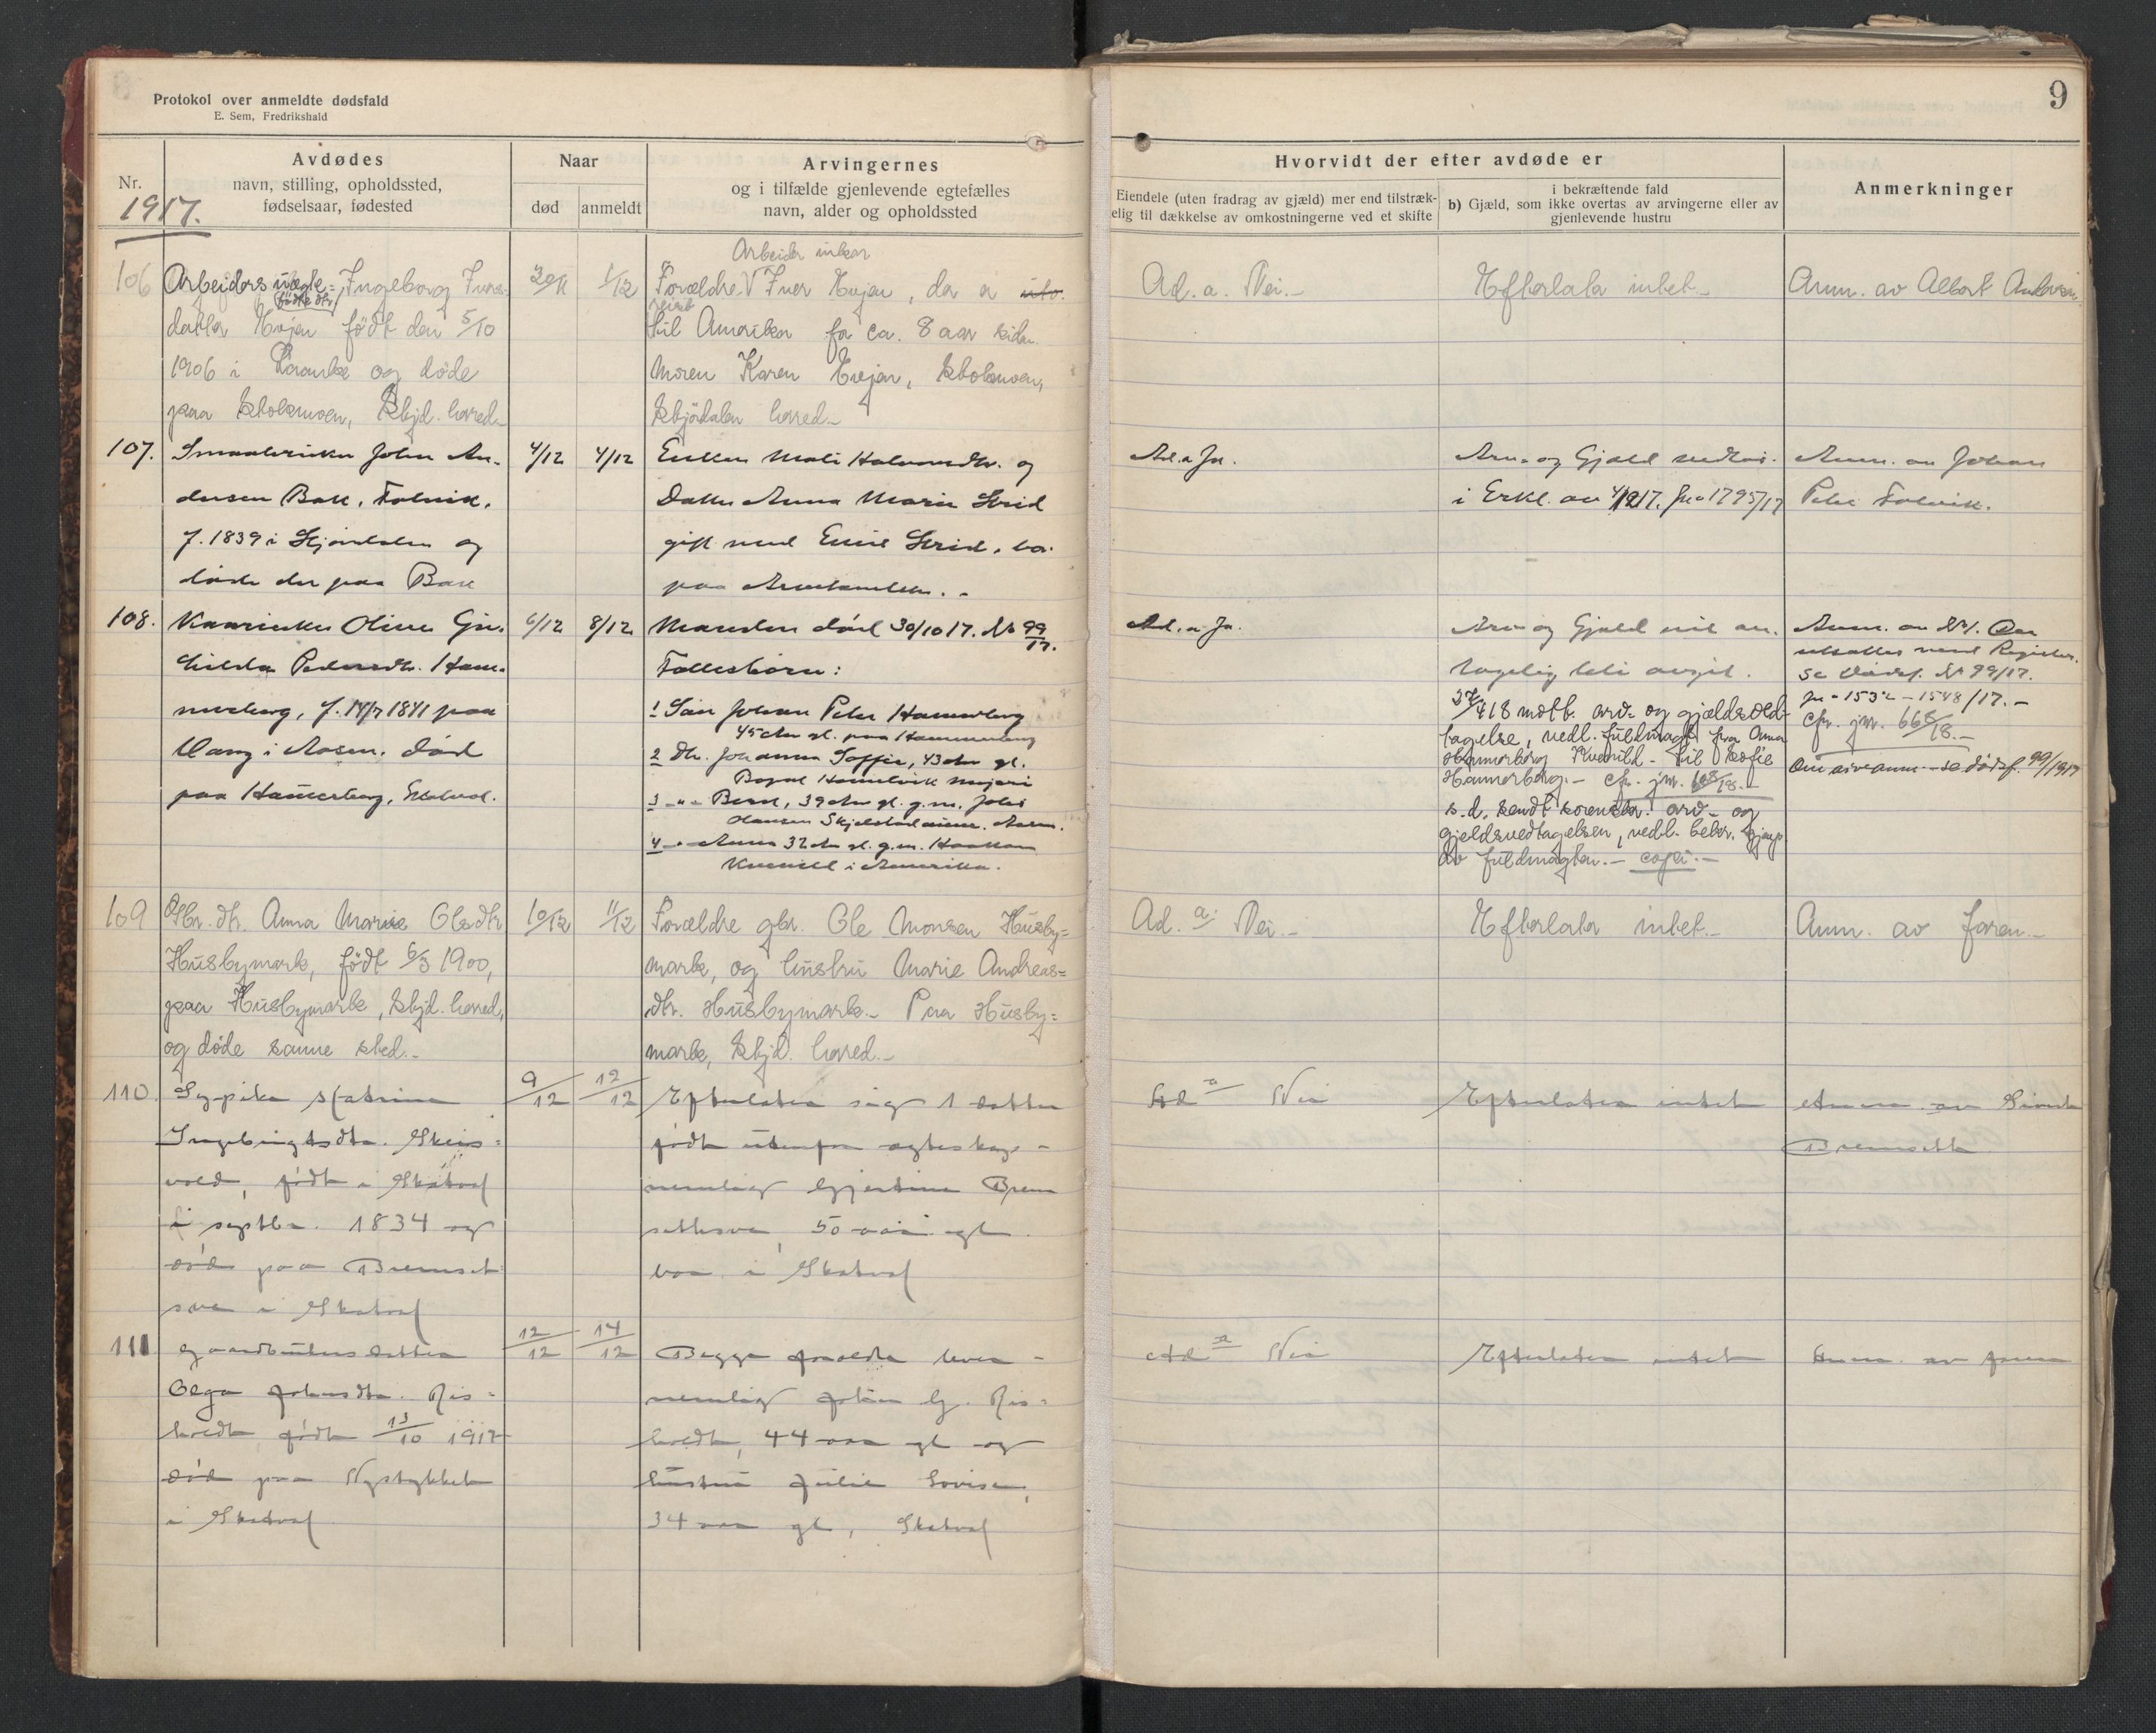 Protokol over anmeldte dødsfald
E. Sem, Fredrikshald
9
Nr.
1917.
Avdødes
navn, stilling, opholdssted,
fødselsaar, fødested
Naar
død
anmeldt
Arvingernes
og i tilfælde gjenlevende egtefælles
navn, alder og opholdssted
Hvorvidt der efter avdøde er
Eiendele (uten fradrag av gjæld) mer end tilstræk-
kelig til dækkelse av omkostningerne ved et skifte
i bekræftende fald
b) Gjæld, som ikke overtas av arvingerne eller av
gjenlevende hustru
Anmerkninger
106
Arbeiders uægte= Ingeborg Ivers
fødte dtr.
datter Evjen født den 5/10
1906 i Flornes og døde
paa Skolemoen, Skjd. herred
30/11
1/12
Forældre Iver Evjen, der er
reist
til Amerika for ca. 8 aar siden.
Moren Karen Evjen,
Stjørdalen herred.-
Ad. a. Nei.-
Efterlater intet.-
Anm. av Albert
107.
John An-
dersen Bakk, Folvik.
f. 1839 i Stjørdalen og
døde der paa Bakk
4/12
4/12
Enken Mali Halvorsdtr. og
Datter Anna Marie Strid
gift med Emil Strid, bor
paa
Ad. a Ja.
Arv- og Gjæld vedtat
i Erkl. av 4/12 17. Jno 1795/17
Anm. av Johan
Peter Folvik.
108.
Kaarenke Oline Gu-
nhilda Pedersdtr. Ham-
merberg, f. 14/7 1841 paa
Vang i Aasen. død
paa Hammerberg, Skatval.
6/12
8/12
Manden død 30/10 17. No 99/17.
Fællesbørn:
1 Søn Johan Peter Hammerberg
45 Aar gl. paa Hammerberg
2 Dtr. Johanna Soffie, 43 Aar gl.
3 -"- Berit, 39 Aar gl. g.m. Johs
Hansen Aasen.
4 -"- Anna 32 Aar gl. g.m. Haakon
Kvernild i Amerika.
Ad. a Ja.
Arv og Gjæld vil an-
tagelig bli avgit.
27/4 18 mott. arv- og gjældsved-
tagelse, vedl. fuldmagt fra Anna
Hammerberg Kvernild - til Sofie
Hammerberg.- cfr. jnr. 668/18.-
s.d. sendt sorenskr. arv- og
gjeldsvedtagelsen, vedl. bekr. gjenp.
av fuldmagten.- copi.-
Anm. av No 1.
Se Dødsf. No 99/17.
jno 1532 - 1548/17.-
Cfr. jnr. 668/18.-
se dødsf. 99/1917
109
Gbr. dtr. Anna Marie Olsdtr
Husbymark, født 6/3 1900,
paa Husbymark, Skjd. herred,
og døde samme sted.-
10/12
11/12
Forældre gbr. Ole Monsen Husby=
mark, og hustru Marie Andreas=
dtr. Husbymark.- Paa Husby=
mark, Skjd. herred.-
Ad. a. Nei.-
Efterlater intet.-
Anm. av faren.-
110.
Sypike Katrina
Ingebrigtsdtr. Skeis=
vold, født i Skatval
i septbr. 1834 og
død paa Bremset
svee i Skatval
9/12
12/12
Efterlater sig 1 datter
født utenfor egteskap -
nemlig Gjertine Brem
setsve, 50 aar gl
bor i Skatval
Ad a Nei
Efterlater intet
Anm. av Sivert
Bremseth
111
Gaardbrukers datter
Olga Johnsdtr. Ris=
holdt, født 13/10 1917
død paa Nystykket
i Skatval
12/12
14/12
Begge forældre lever -
nemlig Johan G. Ris=
holdt, 44 aar gl og
hustru Julie Lovise,
34 aar gl, Skatval
Ad a Nei
Efterlater intet
Anm. av faren